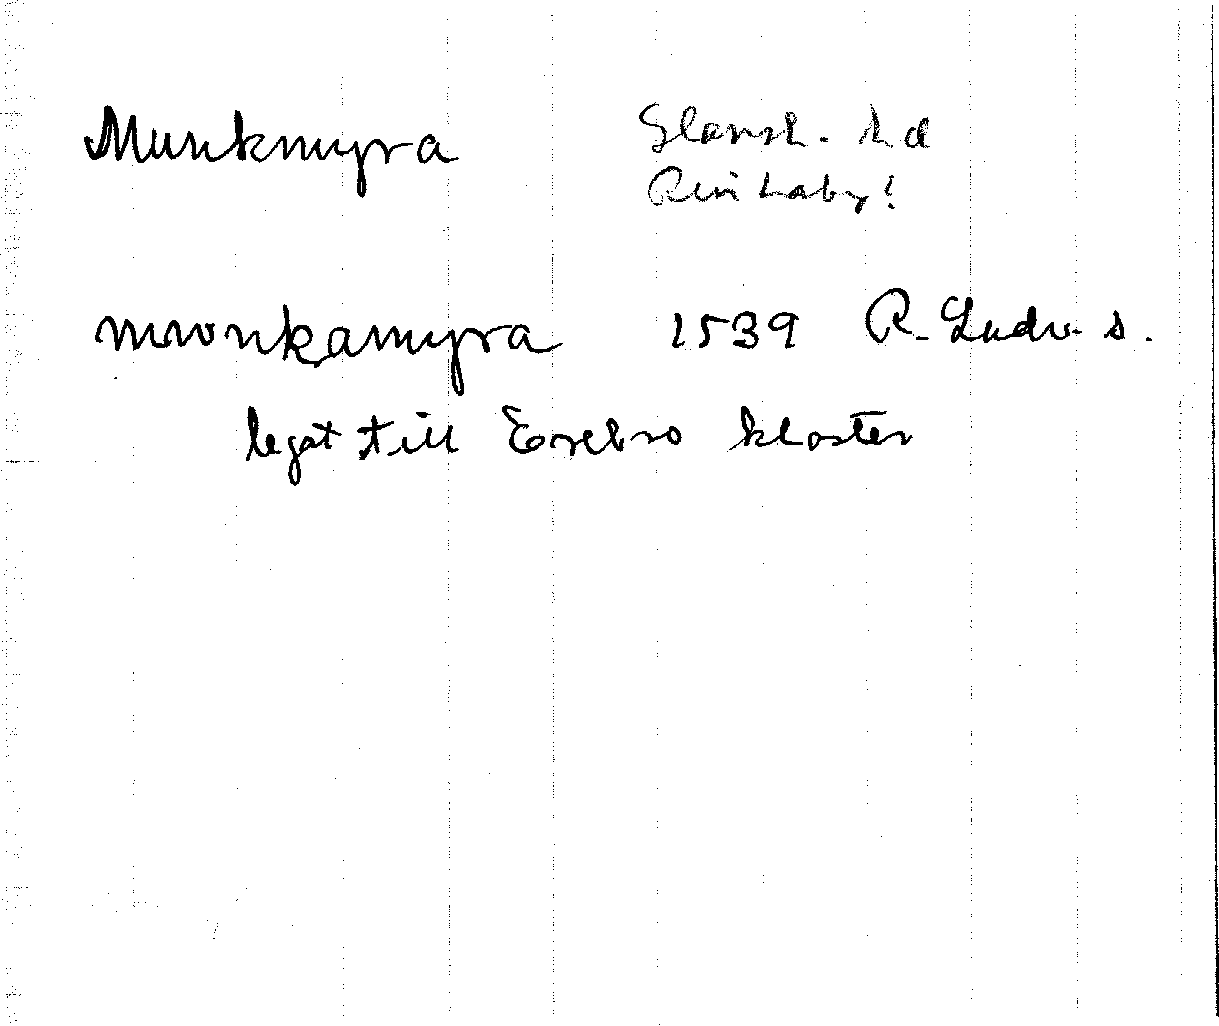 Munkmyra
Glansh. hd
Rinkaby!
mwnkamyra 1539 R. Ludv. s.
legat till Örebro kloster